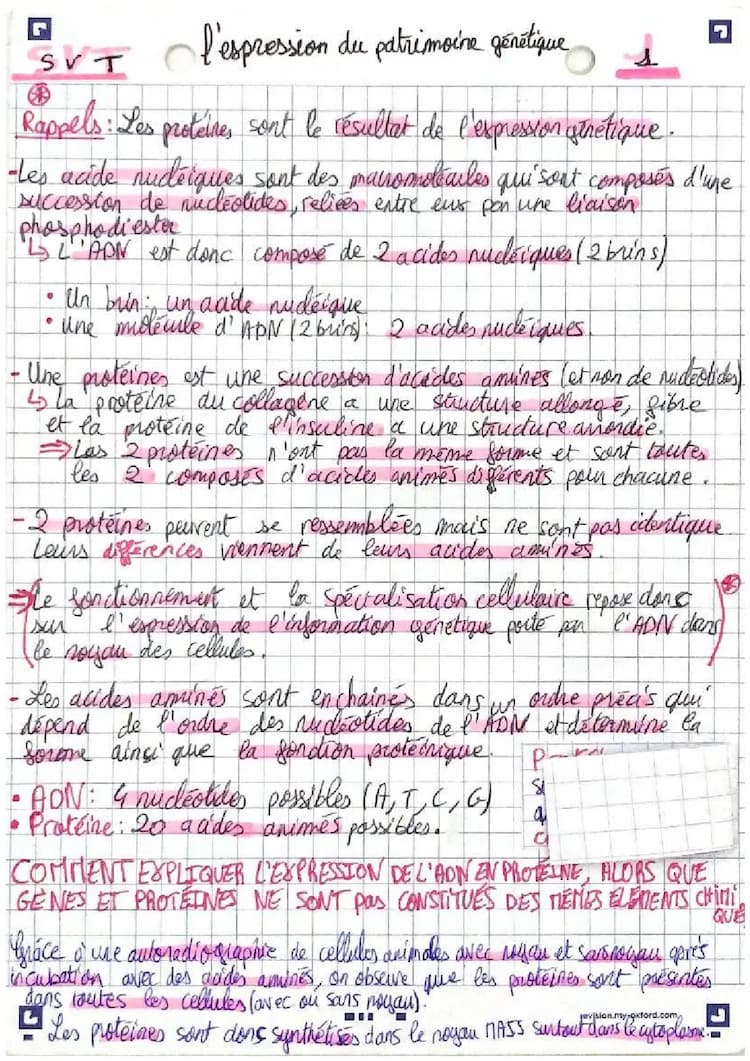 SVT
l'espression du patrimoine génétique
1
Rappels: Les protéines sont le résultat de l'expression génétique.
-Les acide nucléiques sont des macromolécules qui sont composés d'une
succession de nucléotides, reliées entre eux par une liaison
phosphodiester
↳ L'ADN est donc composé de 2 acides nucléiques (2 brins)
• Un brin: un acide nucléique
• une molécule d'ADN (2 brins): 2 acides nucléiques.
- Une protéines est une succession d'acides aminés (et non de nucléotides)
↳ la protéine du collagène a une structure allongé, fibre
et la protéine de l'insuline a une structure arrondie.
⇒ Les 2 protéines n'ont pas la même forme et sont toutes
les 2 composés d'acides animés différents pour chacune.
- 2 protéines peuvent se ressemblées mais ne sont pas identique
Leurs différences viennent de leurs acides aminés.
⇒ Le fonctionnement et la spécialisation cellulaire repose donc
sur l'expression de l'information génétique porté par l'ADN dans
le noyau des cellules.
- Les acides aminés sont enchainés dans un ordre précis qui
dépend de l'ordre des nucléotides de l'ADN et détermine la
forme ainsi que la fonction protéinique.
• ADN: 4 nucléotides possibles (A, T, C, G)
• Protéine: 20 acides animés possibles.
COMMENT EXPLIQUER L'EXPRESSION DE L'ADN EN PROTÉINE, ALORS QUE
GÈNES ET PROTÉINES NE SONT PAS CONSTITUÉS DES MÊMES ÉLÉMENTS CHIMI
QUE
Grâce à une autoradiographie de cellules animales avec noyau et sans noyau après
incubation avec des acides aminés, on observe que les protéines sont présentes
dans toutes les cellules (avec ou sans noyau).
revision.myoxford.com
Les protéines sont donc synthétisés dans le noyau MAIS surtout dans le cytoplasme.